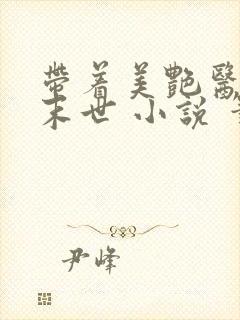 帶着美艷醫
末世 小説
尹峰